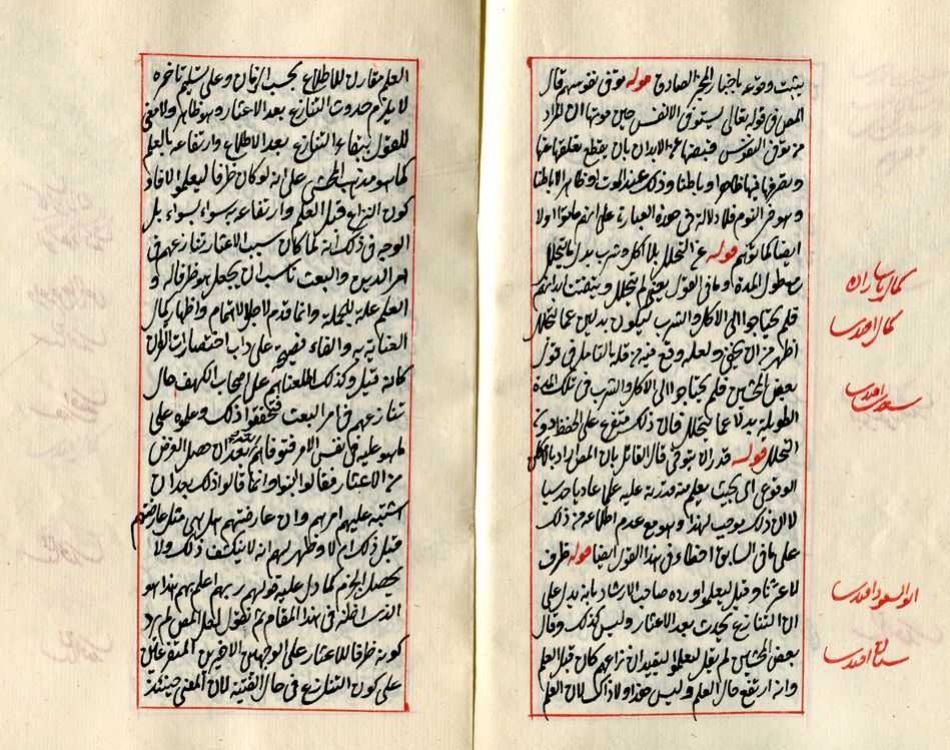 يثبت وقوعه باخبار المخبر الصادق قوله توفى نفوسهم قال
المص في قوله تعالى يتوفى الانفس حين موتها ان المراد
من توفى النفوس قبضها عن الابدان بان يقطع تعلقها عنها
وتصرفها فيها ظاهرا وباطنا وذلك عند الموت او ظاهرا لا باطنا
وهو في النوم فلا دلالة في هذه العبارة على انهم ماتوا اولا
ايضا كما توهم قوله عن التحلل بلا اكل وشرب بدل ما يتحلل
مع طول المدة وما في القول بعينهم لم تتحلل
فلم يحتاجوا الى الاكل والشرب ليكون بدلا عما يتحلل
اظهر من ان يخفى ولعله وقع منه من قلة التامل في قول
بعض المحشين فلم يحتاجوا الى الاكل والشرب في تلك المدة
الطويلة بدلا عما يتحلل فان ذلك متفرع على الحفظ
التحلل قوله قدر الا توقى قال القائل بان المص اراد
الوقوعى اى بحيث يعلم منه قدرته عليه
لان ذلك يوجب لهذا وهو مع عدم اطلاعه من ذلك
على ما في السابق اخطاء في هذا القول ايضا قوله ظرف
لاعثرنا وقيل ليعلموا ورده صاحب الارشاد بانه يدل على
ان التنازع يحدث بعد الاعثار وليس كذلك وقال
بعض المحشين لم يقل ليعلموا ليفيد ان نزاعهم كان قبل العلم
وانه ارتفع حال العلم وليس هذا ولا ذاك لان العلم
كمال پاشا زاده
كمال افندى
سعدى افندى
ابو السعود افندى
سنان افندى
العلم مقارن للاطلاع بحسب الزمان وعلى تسليم تاخره
لا يلزم حدوث التنازع بعد الاعثار وهو ظاهر ولا معنى
للقول ببقاء التنازع بعد الاطلاع وارتفاعه بالعلم
كما هو مذهب المحشى على انه لو كان ظرفا ليعلموا لافاد
كون النزاع قبل العلم وارتفاعه به سواء بسواء بل
الوجه في ذلك انه لما كان سبب الاعثار تنازعهم في
امر الدين والبعث ناسب ان يجعل هو ظرفا له و
العلم علة للجملة وانما قدم لاجل الاهتمام واظهار كمال
العناية به والفاء فصيحة على داب اختصارات القرآن
كانه قيل وكذلك اطلعناهم على اصحاب الكهف حال
تنازعهم في امر البعث فتحققوا ذلك وعلموه على
ما هو عليه في نفس الامر فتوفاهم بعد ان حصل الغرض
من الاعثار فقالوا ابنوا وانما قالوا ذلك بعد ان
اشتبه عليهم امرهم وان عارضتهم هل هى مثل عارضتهم
قبل ذلك ام لا وظهر لهم انه لا ينكشف ذلك ولا
يحصل الجزم كما دل عليه قولهم ربهم اعلم بهم هذا هو
الذى اظنه في هذا المقام ثم نقول لعل المص لم يرد
كونه ظرفا للاعثار على الوجهين الاخيرين المتفرعين
على كون التنازع في حال الفتية لان المعنى حينئذ